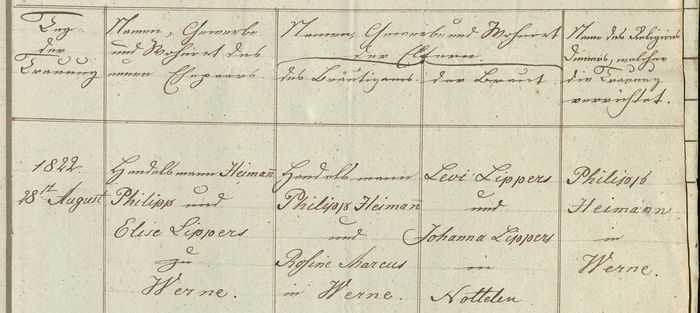 Tag
der
Trauung
Namen, Gewerbe
und Wohnort des
neuen Ehepaars
Namen, Gewerbe und Wohnort
der Eltern.
des Bräutigams.
der Braut.
Name des Religions
Dieners, welcher
die Trauung
verrichtet.
1822
28st August
Handelsmann Heimañ
Philipp und
Elise Lippers
zu
Werne.
Handelsmann
Philipp Heiman
und
Rosine Marcus
in Werne.
Levi Lippers
und
Johanna Lippers
in
Nottelen
Philipp
Heimann
in
Werne.